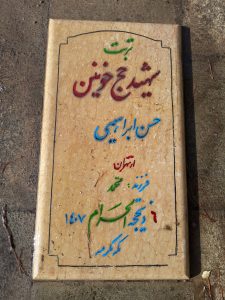 تربت
شهید حج خونین
حسن ابراهیمی
از تهران
فرزند: محمد
۶ ذیحجة الحرام ۱۴۰۷
مکه مکرمه